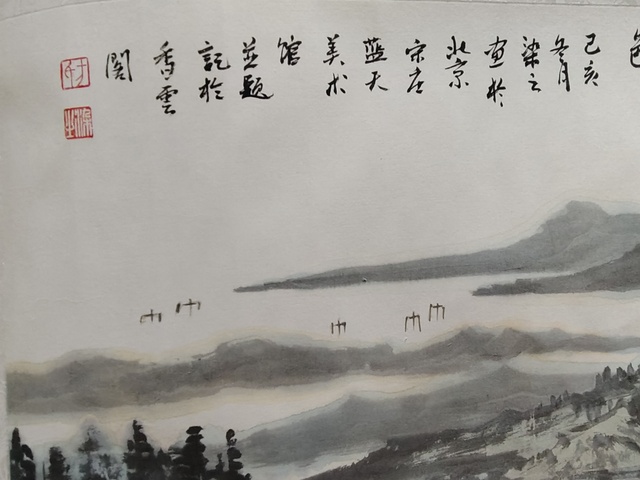 色
己亥
冬月
染之
画於
北京
宋庄
蓝天
美术
馆
並题
記於
香雲
閣